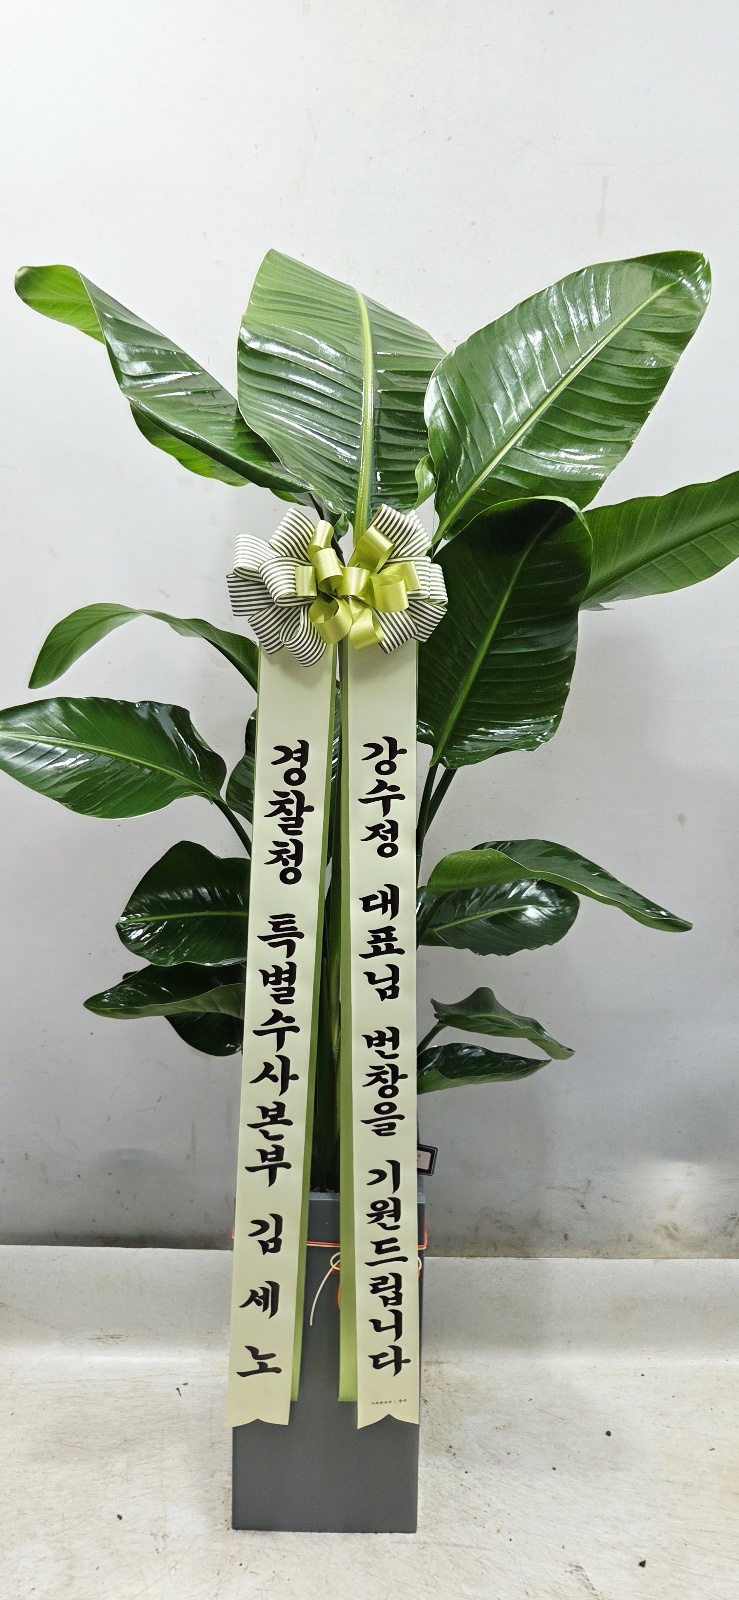 경찰청 특별수사본부 김세노
강수정 대표님 번창을 기원드립니다